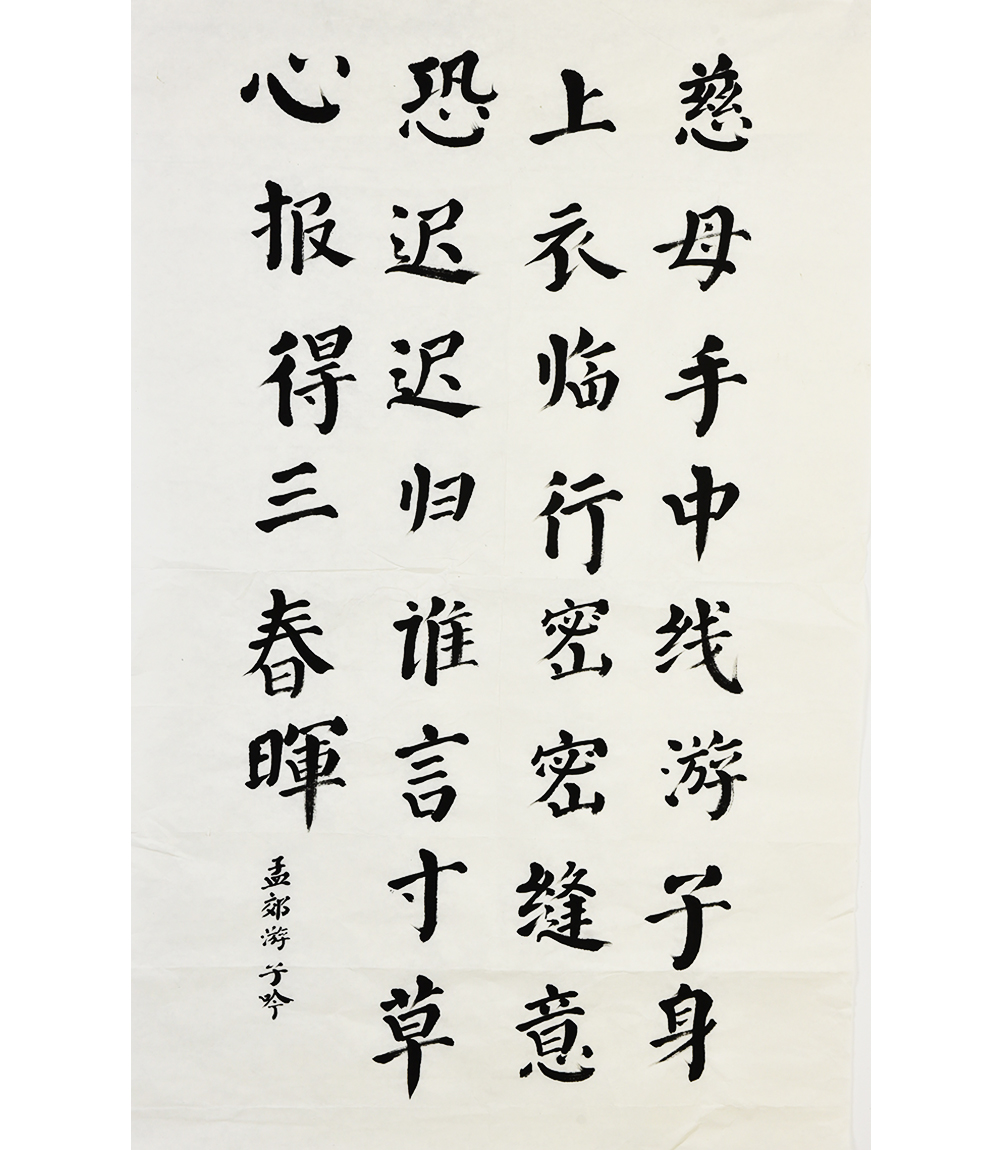 慈母手中线游子身
上衣临行密密缝意
恐迟迟归谁言寸草
心报得三春暉
孟郊游子吟